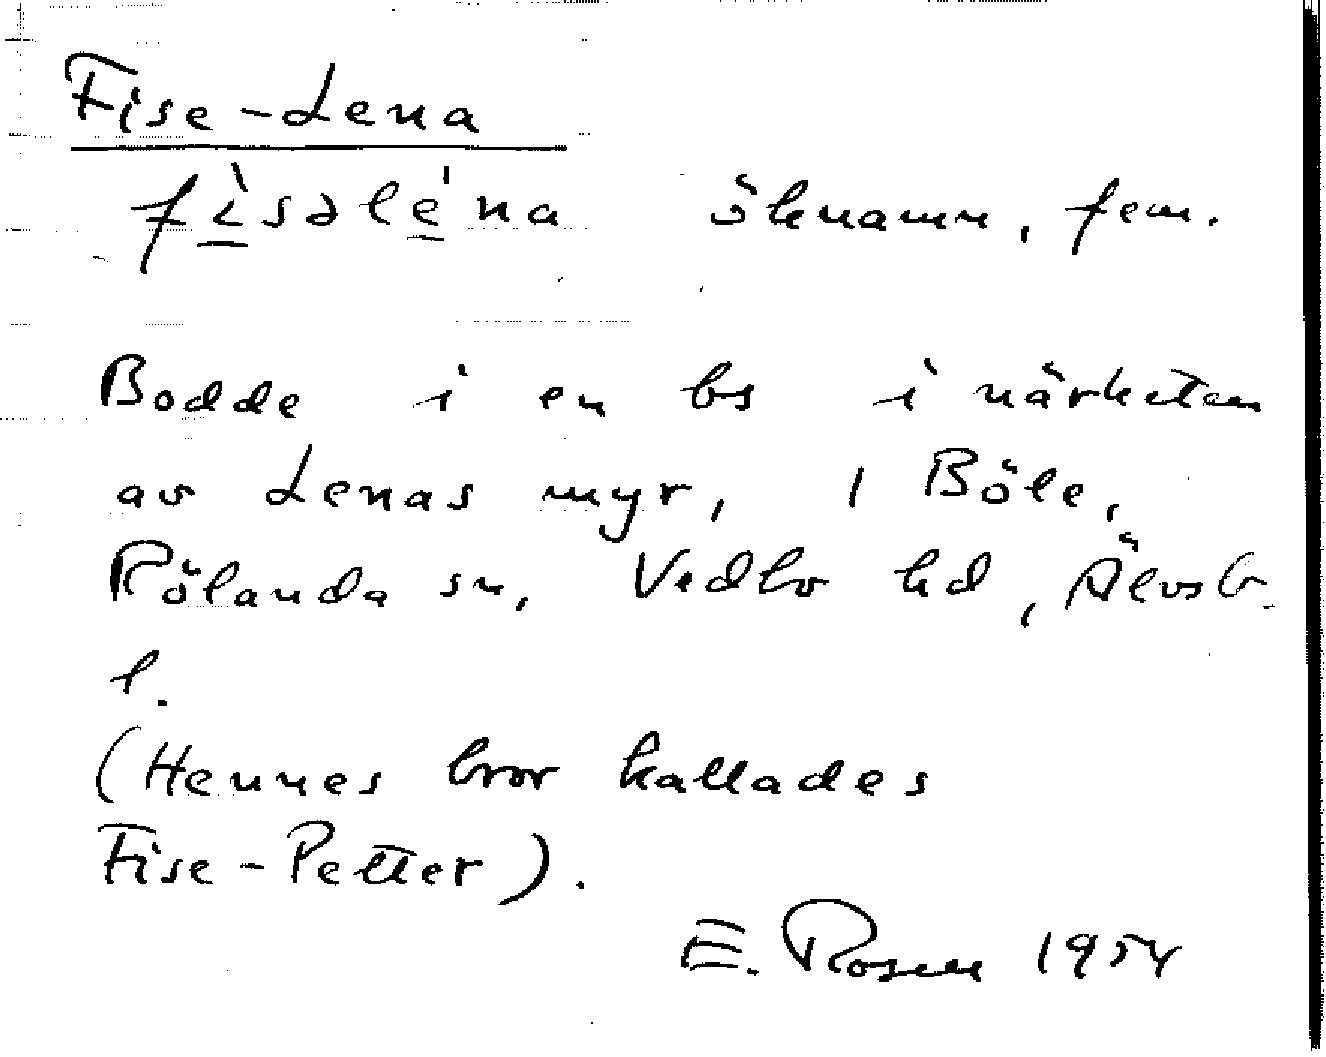 Fise-Lena
fìsəle̍na öknamn, fem.
Bodde i en bs i närheten
av Lenas myr, 1 Böle,
Rölanda sn, Vedbo hd, Älvsb.
l.
(Hennes bror kallades
Fise-Petter).
E. Rosen 1954